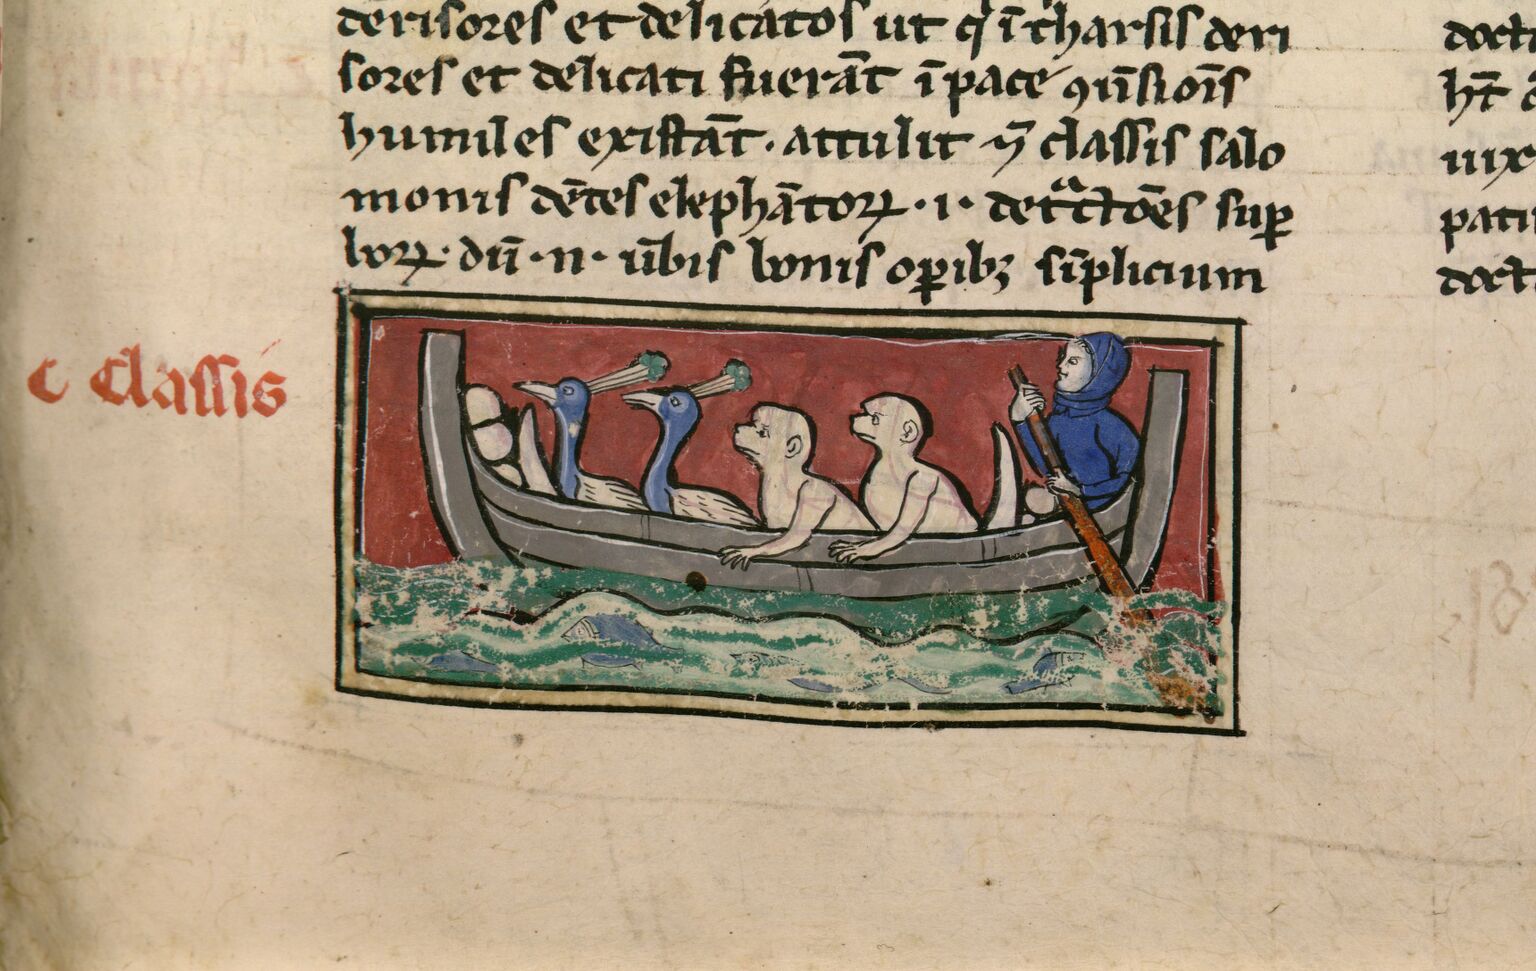 derisores et delicatos ut q̓ ī tharsis deri
sores et delicati fuerāt ī pace ꝯūsiōis
humiles existāt. attulit classis salo
monis dētes elephātoꝝ ·i· detͣctōes suꝑ
boꝝ· dū ·n· ūbis bonis oꝑibꝫ sīplicium
c Classis
docti
ht̄
iux
pati
docti